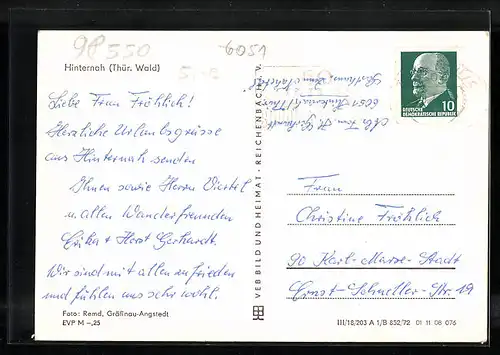 98550
6051
Hinternah (Thür. Wald)
Liebe Frau Fröhlich!
Herzliche Urlaubsgrüsse
aus Hinternah senden
Ihnen sowie Herrn Viertel
u. allen Wanderfreunden
Erika + Horst Gerhardt.
Wir sind mit allem zufrieden
und fühlen uns sehr wohl.
Foto: Remd, Gräfinau-Angstedt
EVP M –,25
VEB BILD UND HEIMAT · REICHENBACH i. V.
Abs. Fam. H. Gerhardt
6051 Hinternah/Thür.
DEUTSCHE
DEMOKRATISCHE REPUBLIK
10
Frau
Christine Fröhlich
90 Karl-Marx-Stadt
Ernst-Schneller-Str. 19
III/18/203 A 1/B 852/72 01 11 08 076